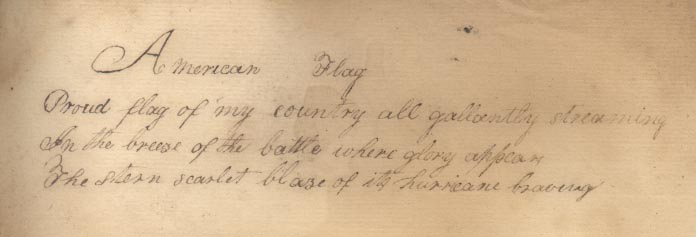 American Flag
Proud flag of my country all gallantly streaming
In the breeze of the battle where glory appears
The stern scarlet blaze of its hurricane braving